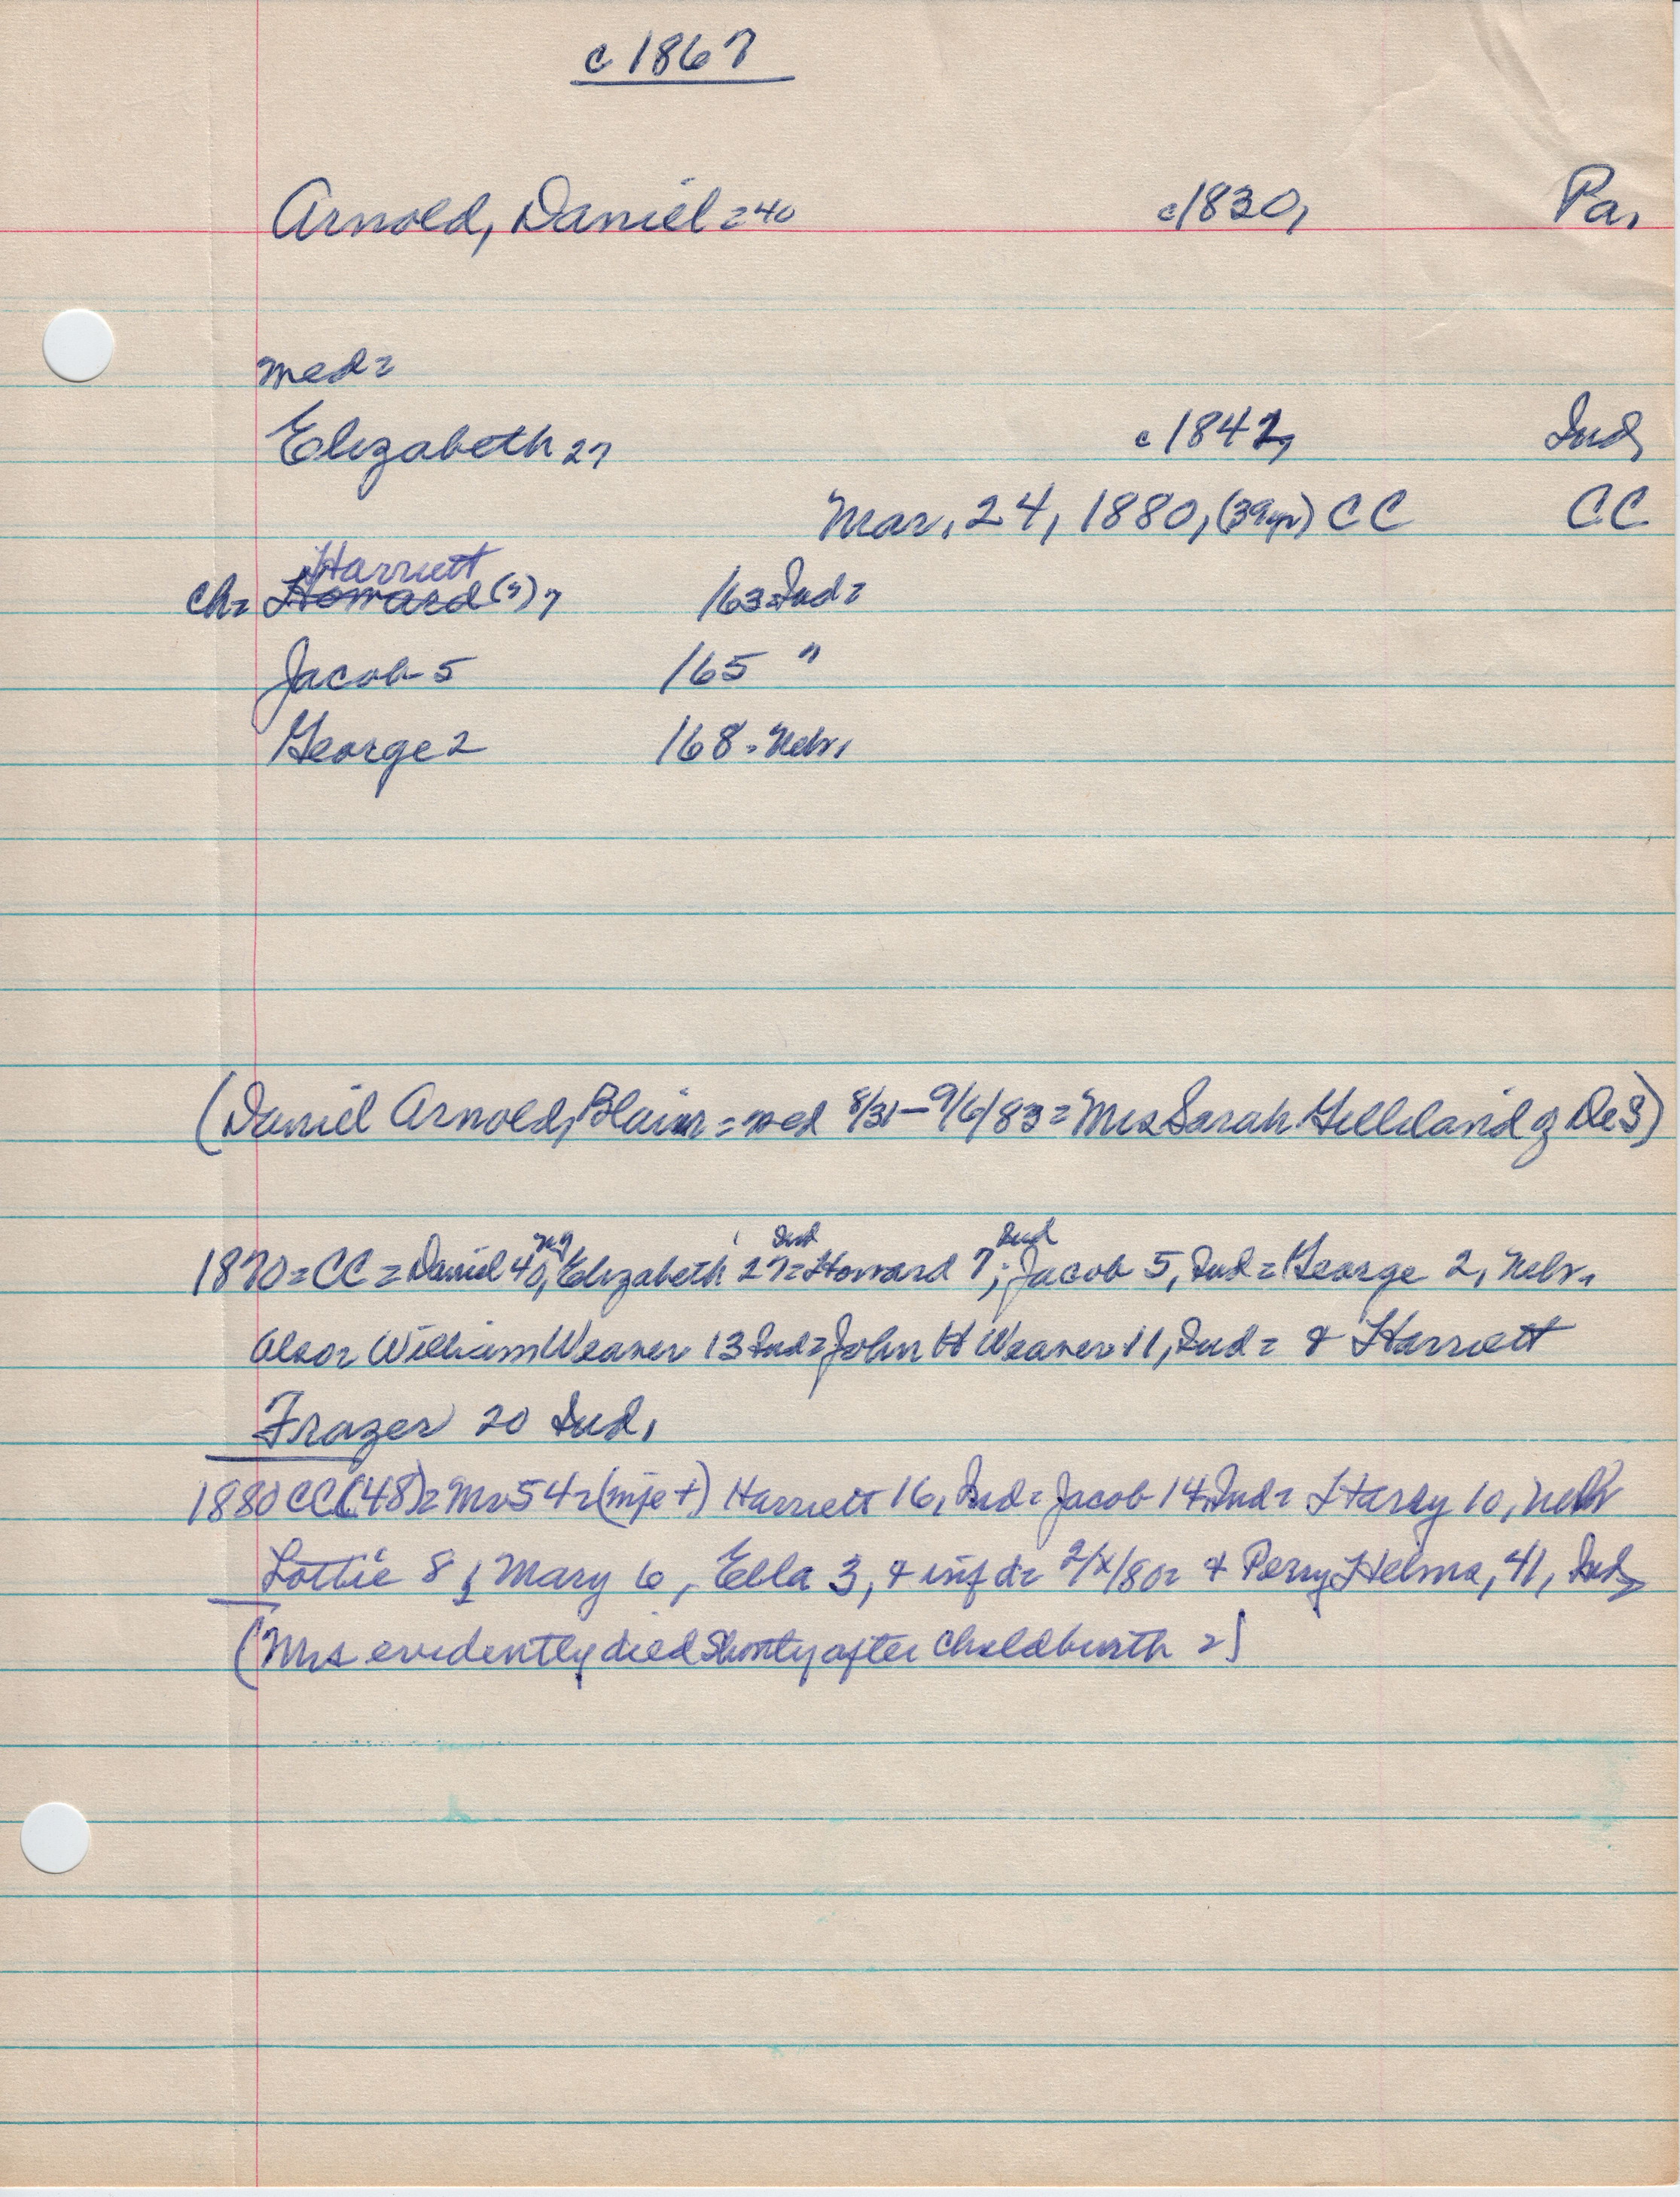 c 1867
Arnold, Daniel = 40 c1830, Pa.
med =
Elizabeth 27 c1842, Ind,
Mar. 24, 1880, (39yr) CC CC
Harriett
ch= Howard (?) 7 /63 = Ind =
Jacob 5 /65 "
George 2 /68 - Nebr.
(Daniel Arnold, Blair = med 8/31 - 9/6/83 = Mrs Sarah Gilleland of DeS)
Ind Ind
1870 = CC = Daniel 40, Elizabeth 27 = Howard 7, Jacob 5, Ind = George 2, Nebr.
Also = William Weaver 13 Ind = John H Weaver 11, Ind = & Harriett
Frazer 20 Ind.
1880 CC (48) = Mr 54 = Harriett 16, Ind = Jacob 14, Ind = Harry 10, Nebr
Lottie 8, Mary 6, Ella 3, & inf d = 2/x/80 = & Perry Helms, 41, Ind,
(Mrs evidently died shortly after childbirth =)